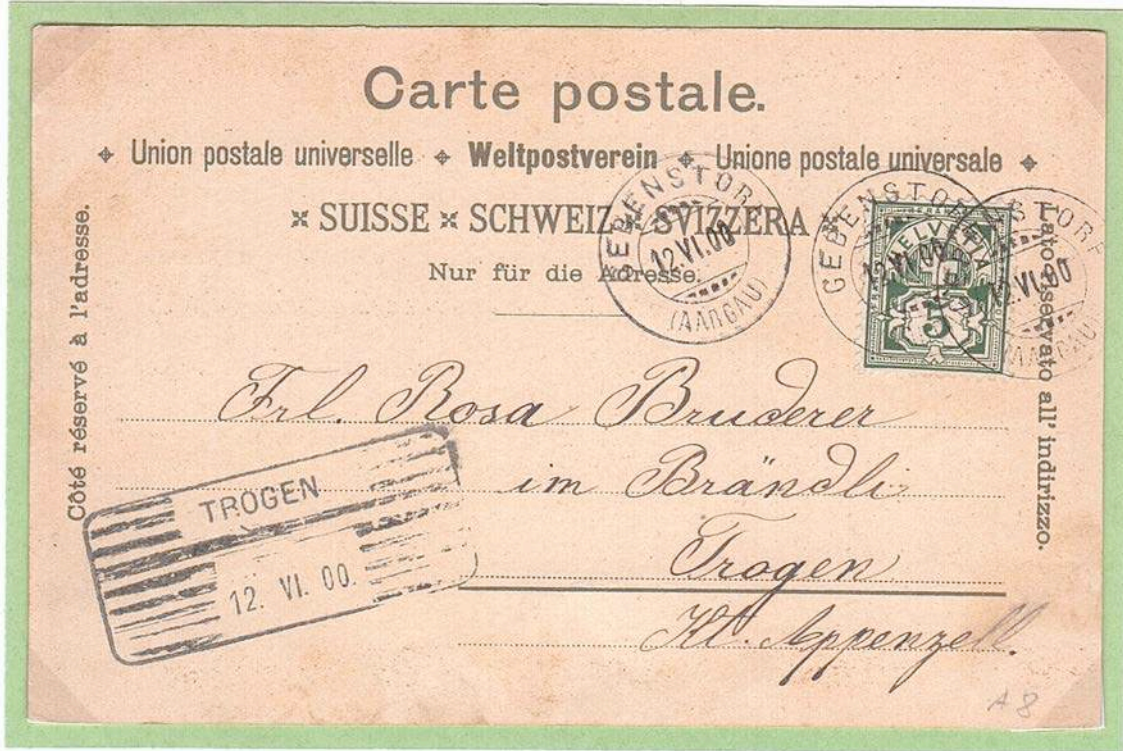 Carte postale.
✦ Union postale universelle ✦ Weltpostverein ✦ Unione postale universale ✦
SUISSE × SCHWEIZ × SVIZZERA
Nur für die Adresse.
Côté réservé à l'adresse.
Lato riservato all' indirizzo.
GEBENSTORF
12.VI.00
(AARGAU)
GEBENSTORF
12.VI.00
HELVETIA
5
12.VI.00
(AARGAU)
Frl. Rosa Bruderer
im Brändli
Trogen
Kt. Appenzell.
TROGEN
12. VI. 00.
A 8